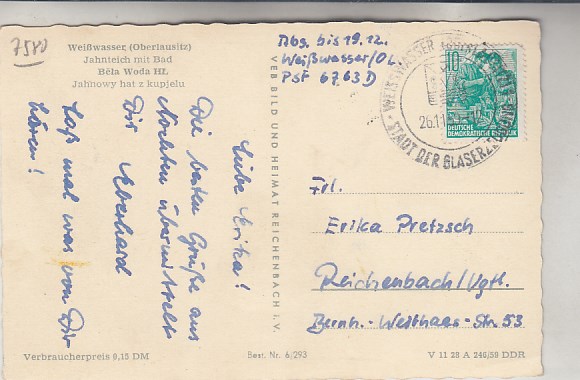 7580
Weißwasser (Oberlausitz)
Jahnteich mit Bad
Běła Woda HŁ
Jahnowy hat z kupjelu
Liebe Erika!
Die besten Grüße aus
Nochten übermittelt
Dir Eberhard
Laß mal was von Dir
hören!
Verbraucherpreis 0,15 DM
VEB BILD UND HEIMAT REICHENBACH I. V.
Best. Nr. 6/293
Abg. bis 19.12.
Weißwasser/OL.
PsF 67.63 D
WEISSWASSER
STADT DER GLASERZEUGUNG
26.11
10
DEUTSCHE
DEMOKRATISCHE REPUBLIK
Frl.
Erika Pretzsch
Reichenbach/Vgtl.
Bernh.-Weithaas-Str. 53
V 11 28 A 246/59 DDR